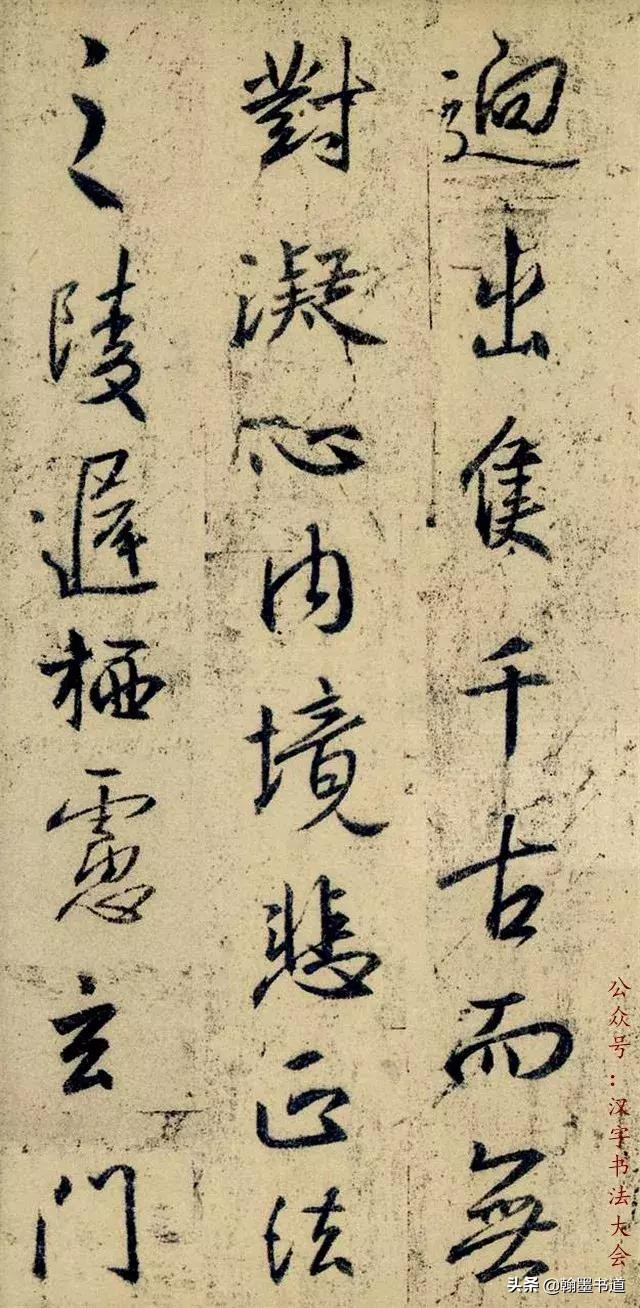 迥出隻千古而無
對凝心內境悲正法
之陵遲栖慮玄門
公众号：汉字书法大会
头条 @翰墨书道